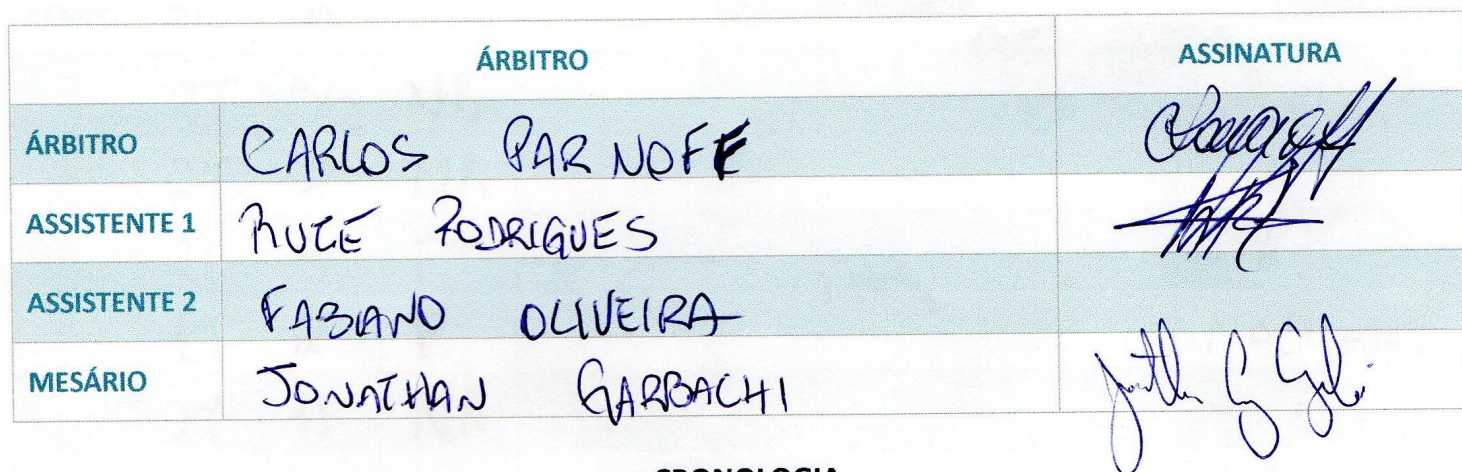 ÁRBITRO ASSINATURA
ÁRBITRO CARLOS PARNOFF
ASSISTENTE 1 RUTE RODRIGUES
ASSISTENTE 2 FABIANO OLIVEIRA
MESÁRIO JONATHAN GARBACHI
CRONOLOGIA